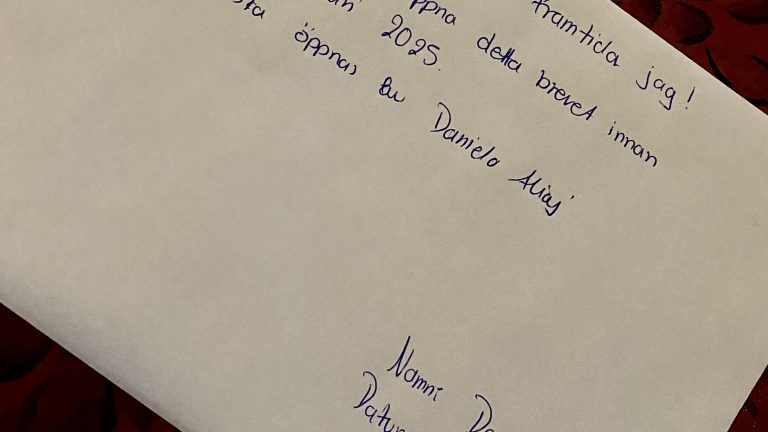 framtida jag!
ppna detta brevet innan
2025.
öppnas av Daniela Alias
Namn: Da
Datum